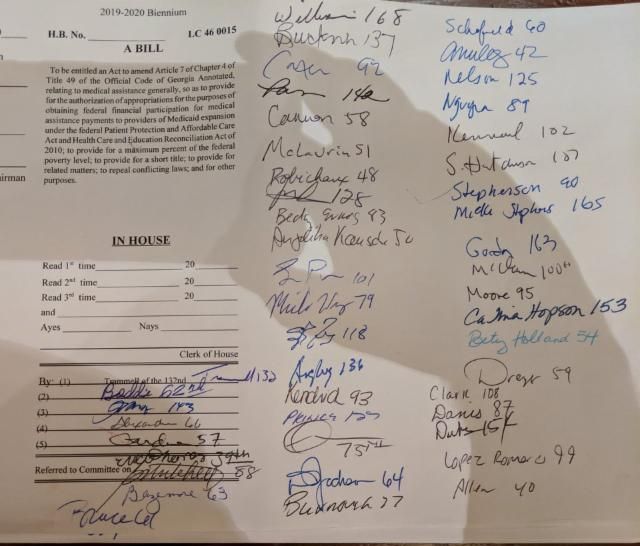 2019-2020 Biennium
H.B. No. LC 46 0015
A BILL
To be entitled an Act to amend Article 7 of Chapter 4 of
Title 49 of the Official Code of Georgia Annotated,
relating to medical assistance generally, so as to provide
for the authorization of appropriations for the purposes of
obtaining federal financial participation for medical
assistance payments to providers of Medicaid expansion
under the federal Patient Protection and Affordable Care
Act and Health Care and Education Reconciliation Act of
2010; to provide for a maximum percent of the federal
poverty level; to provide for a short title; to provide for
related matters; to repeal conflicting laws; and for other
purposes.
airman
IN HOUSE
Read 1st time 20
Read 2nd time 20
Read 3rd time 20
and
Ayes Nays
Clerk of House
By: (1) Trammell of the 132nd Trammell 132
(2) 62nd
(3) 143
(4) Alexander 66
(5) Gardner 57
39th
Referred to Committee on Mitchell 88
Bazemore 63
William 168
Buckner 137
92
142
Cannon 58
McLaurin 51
Robichaux 48
128
Becky Evans 83
Angelika Kausche 50
101
79
118
136
Kendrick 93
75th
64
77
Schofield 60
42
Nelson 125
Nguyen 89
Kennard 102
S. Hutchinson 107
Stephenson 90
Mickey Stephens 165
163
100th
Moore 95
CaMia Hopson 153
Betsy Holland 54
Dreyer 59
Clark 108
Davis 87
Dukes 154
Lopez Romero 99
Allen 40